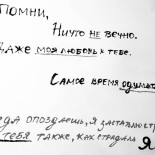 помни,
Ничто не вечно.
даже моя любовь к тебе.
Самое время одумат
да опоздаешь, я заставлю
тебя также, как страдала я